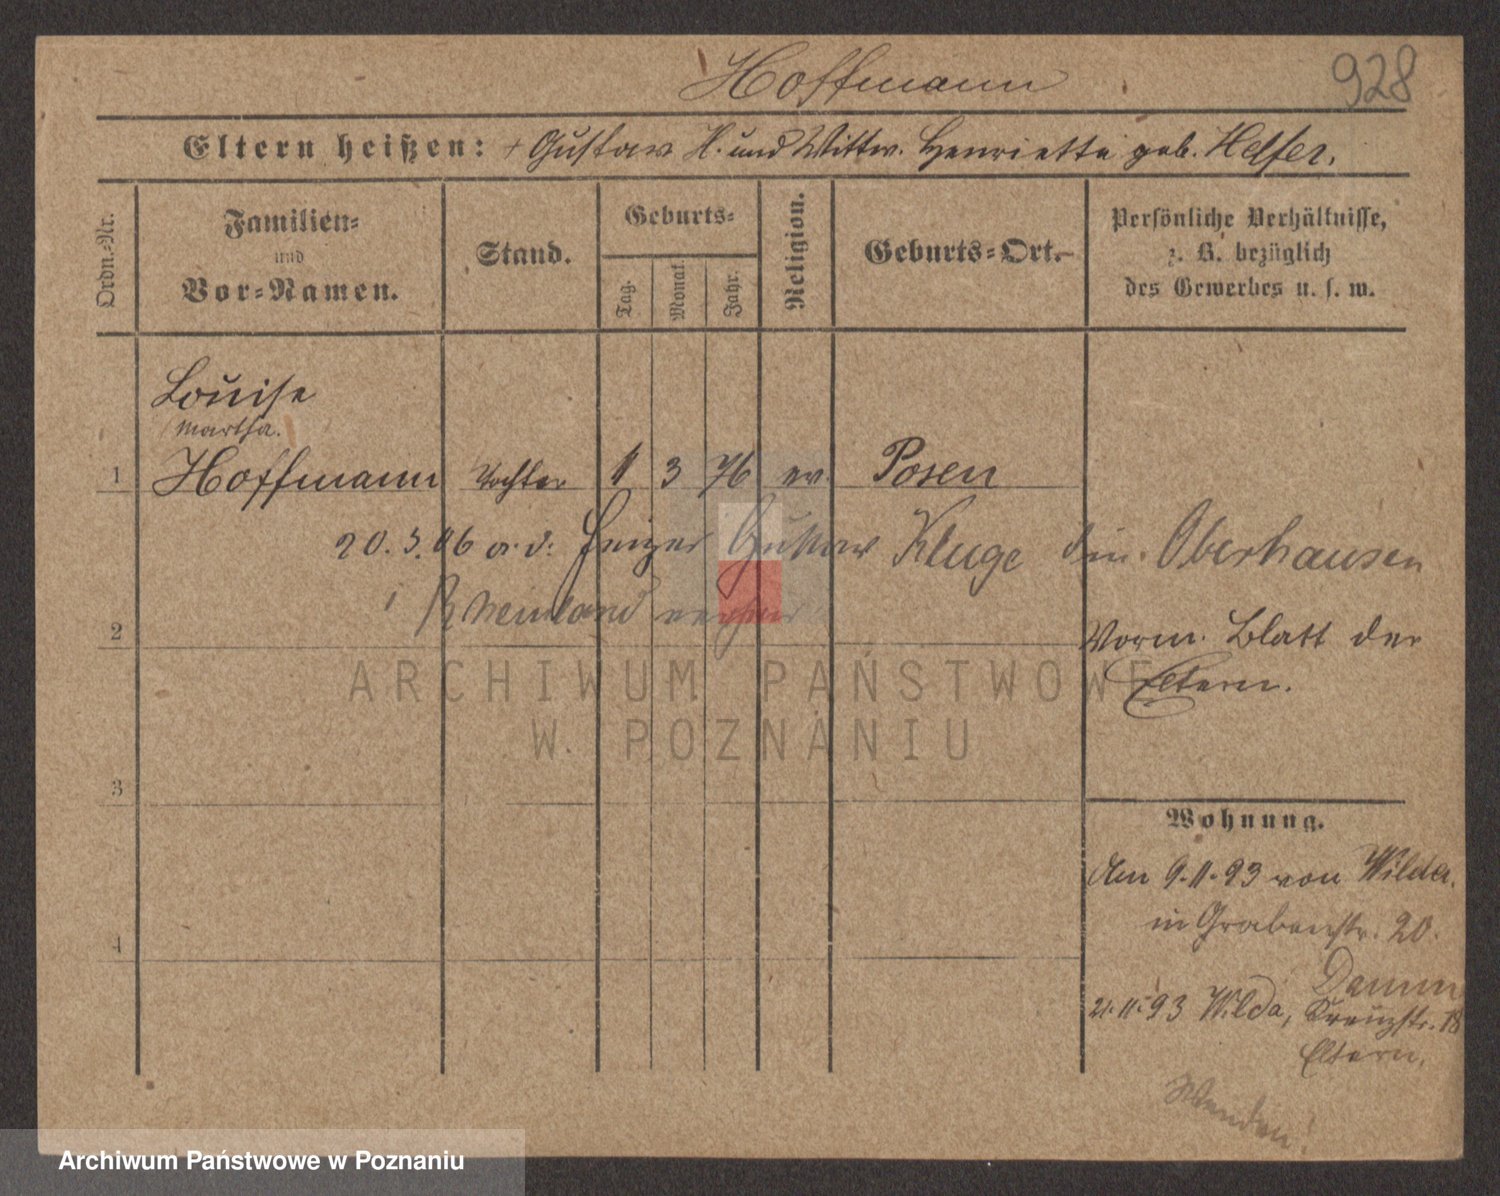 Hoffmann
928
Eltern heißen: + Gustav H. und Wittw. Henriette geb. Helfer.
Ordn.-Nr.
Familien-
und
Vor-Namen.
Stand.
Geburts-
Tag.
Monat.
Jahr.
Religion.
Geburts-Ort.
Persönliche Verhältnisse,
z. B. bezüglich
des Gewerbes u. s. w.
Louise
Martha.
1 Hoffmann Tochter 1 3 76 ev. Posen
20. 3. 06 a. d. Heizer Gustav Kluge in Oberhausen
Rheinland
2
Vorm. Blatt der
Eltern.
3
Wohnung.
Am 9.11.93 von Wilda,
in Grabenstr. 20.
4
Damm
21.11.93 Wilda, Kreuzstr. 18
Eltern.
Wenden!
ARCHIWUM PAŃSTWOWE
W POZNANIU
Archiwum Państwowe w Poznaniu